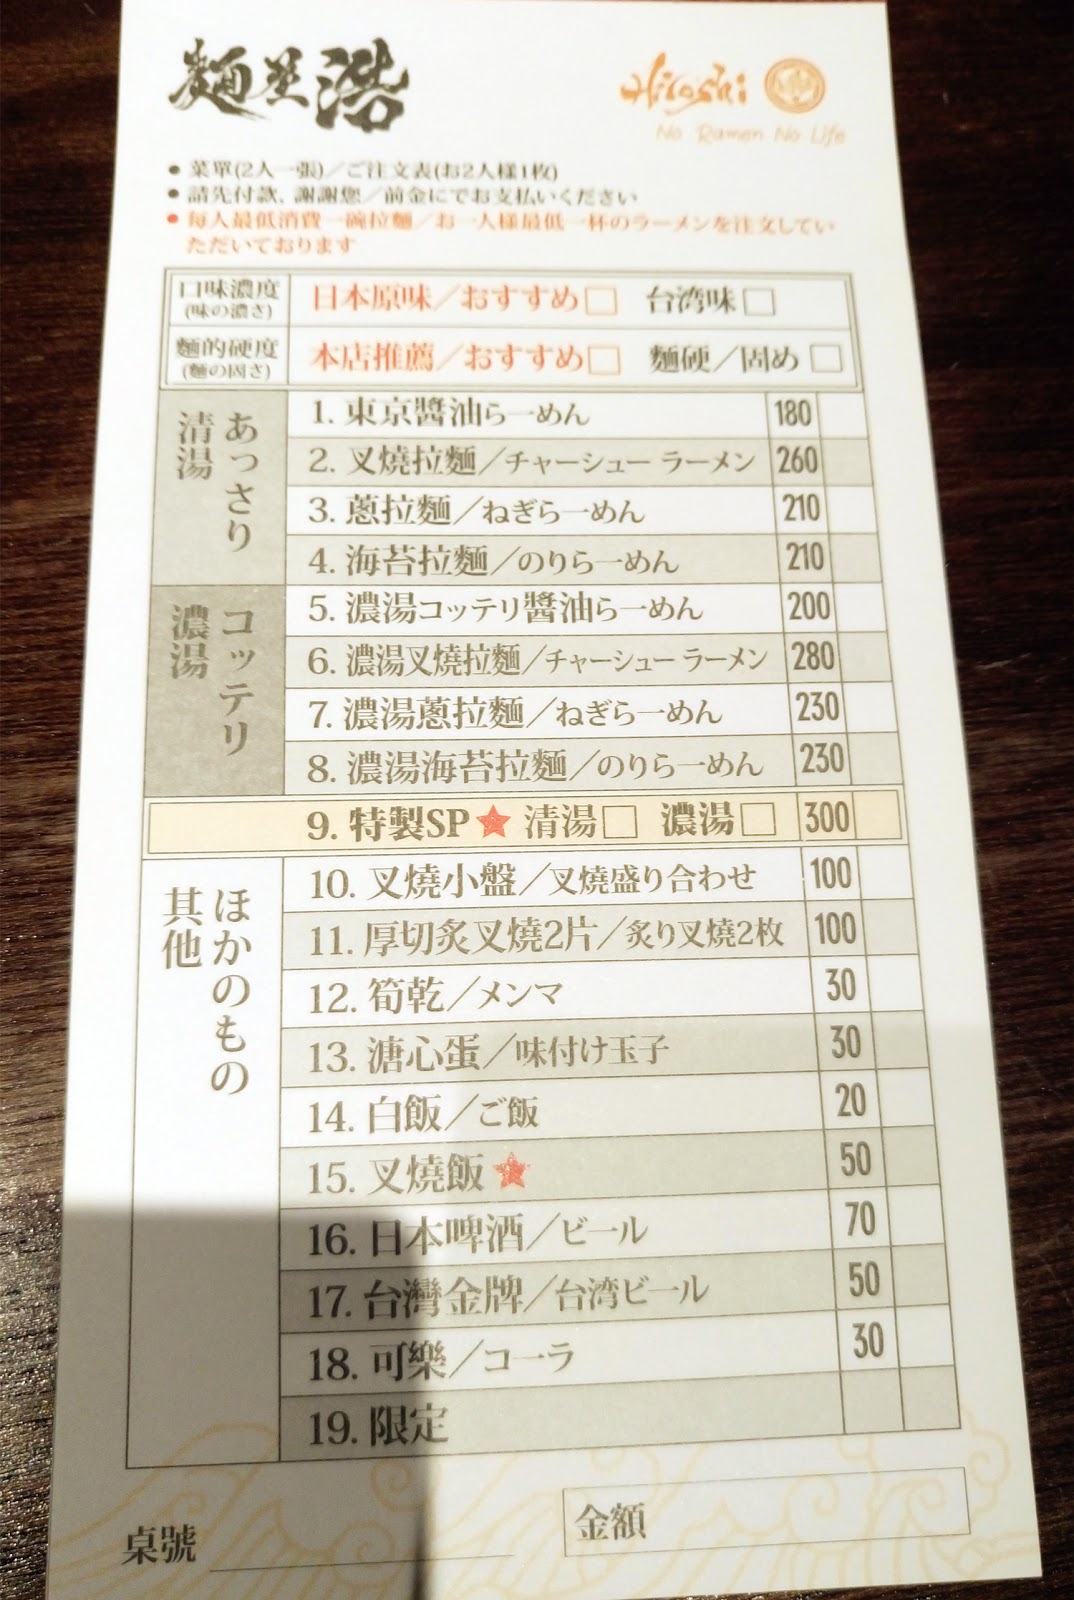 麵屋浩
Hiroshi
No Ramen No Life
● 菜單(2人一張)／ご注文表(お2人様1枚)
● 請先付款、謝謝您／前金にてお支払いください
● 每人最低消費一碗拉麵／お一人様最低一杯のラーメンを注文してい
ただいております
口味濃度
(味の濃さ)
日本原味／おすすめ□ 台湾味□
麵的硬度
(麵の固さ)
本店推薦／おすすめ□ 麵硬／固め □
あっさり
清湯
1. 東京醬油らーめん 180
2. 叉燒拉麵／チャーシュー ラーメン 260
3. 蔥拉麵／ねぎらーめん 210
4. 海苔拉麵／のりらーめん 210
コッテリ
濃湯
5. 濃湯コッテリ醬油らーめん 200
6. 濃湯叉燒拉麵／チャーシュー ラーメン 280
7. 濃湯蔥拉麵／ねぎらーめん 230
8. 濃湯海苔拉麵／のりらーめん 230
9. 特製SP★ 清湯□ 濃湯□ 300
ほかのもの
其他
10. 叉燒小盤／叉燒盛り合わせ 100
11. 厚切炙叉燒2片／炙り叉燒2枚 100
12. 筍乾／メンマ 30
13. 溏心蛋／味付け玉子 30
14. 白飯／ご飯 20
15. 叉燒飯★ 50
16. 日本啤酒／ビール 70
17. 台灣金牌／台湾ビール 50
18. 可樂／コーラ 30
19. 限定
桌號
金額